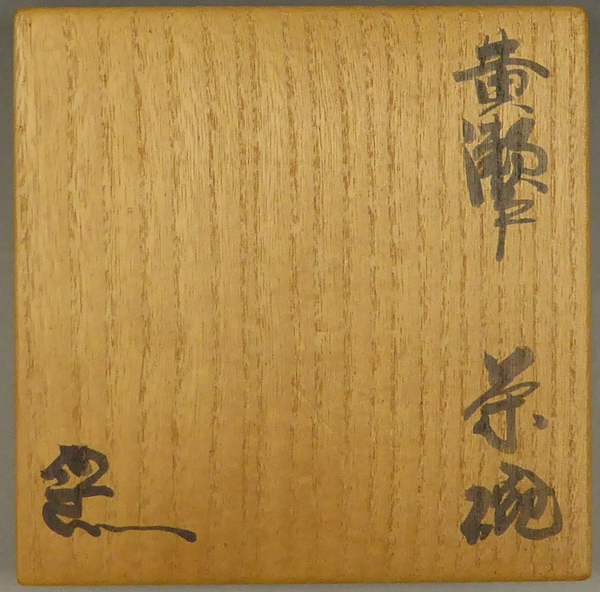 黄瀬戸 茶碗